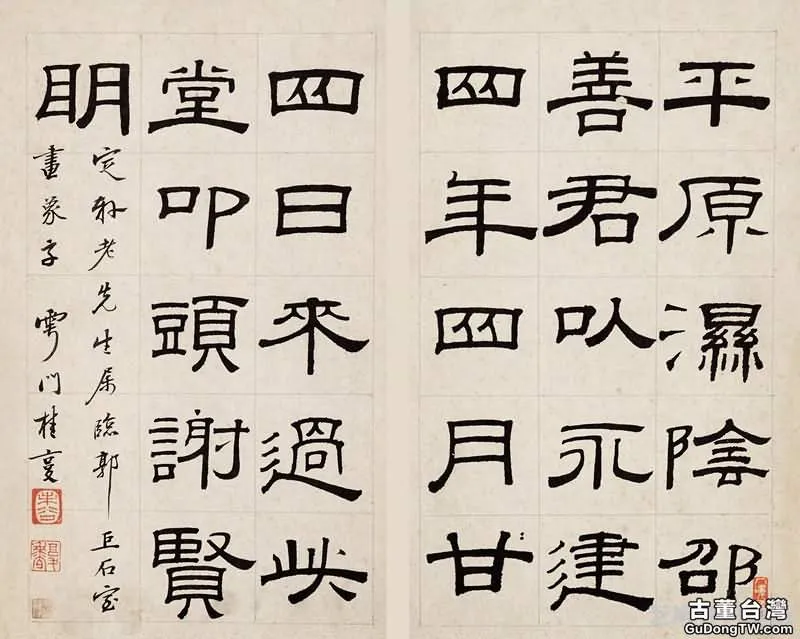 平原濕陰邵
善君以永建
四年四月甘
四日來過此
堂叩頭謝賢
明
定老先生屬臨郭巨石室
畫象字 雩門桂馥
未谷
古董台灣
GuDongTW.com